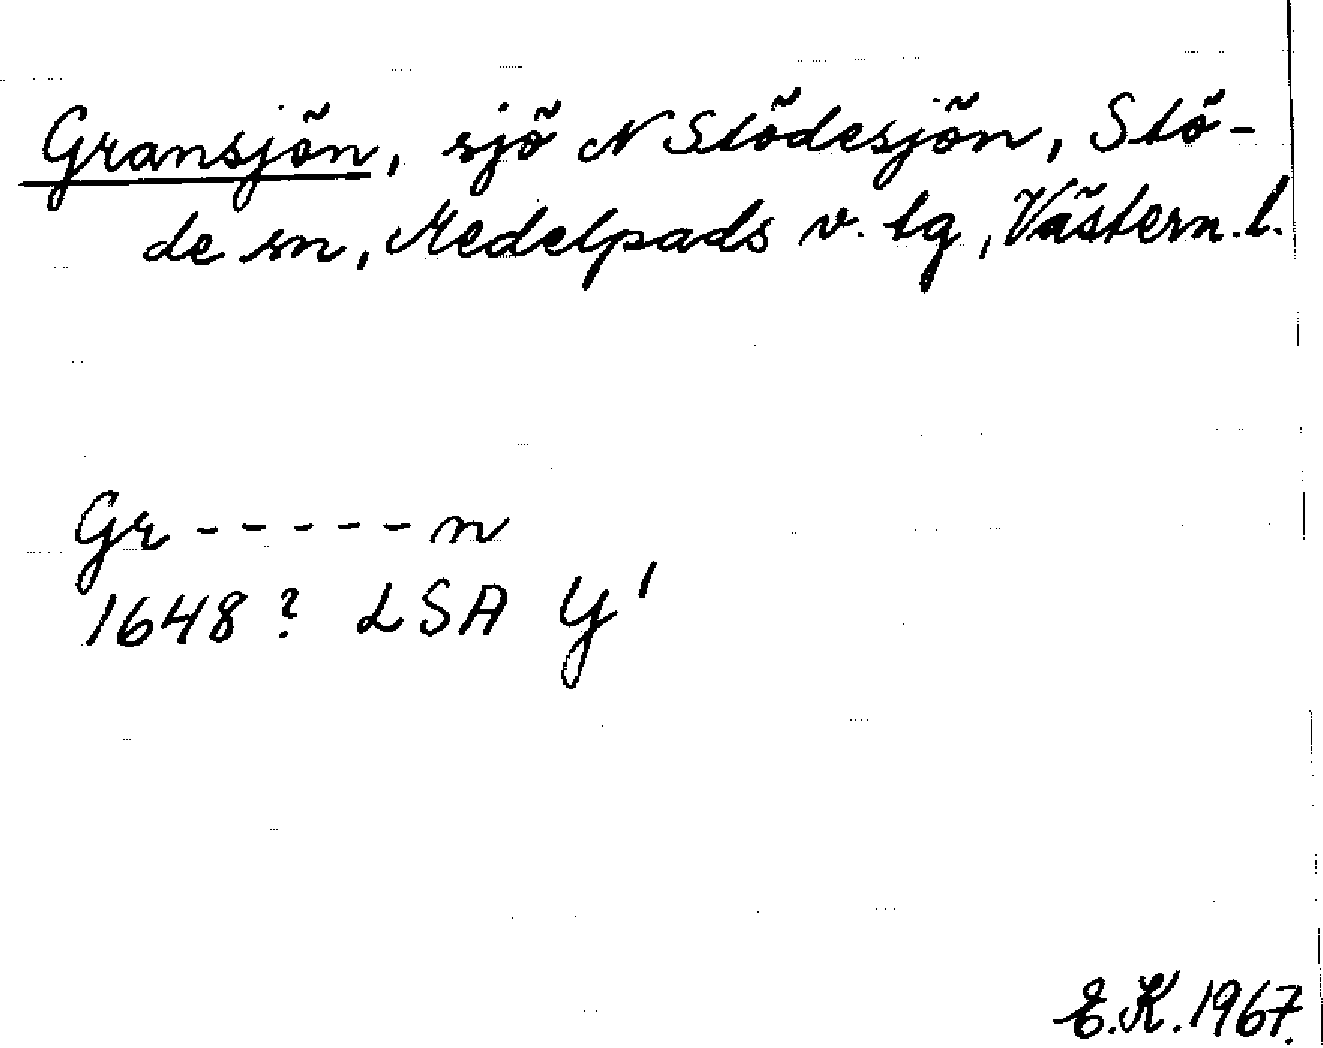 Gransjön, sjö N Stödesjön, Stö-
de sn, Medelpads v. tg, Västern.l.
Gr-----n
1648? LSA Y'
E.K. 1967.